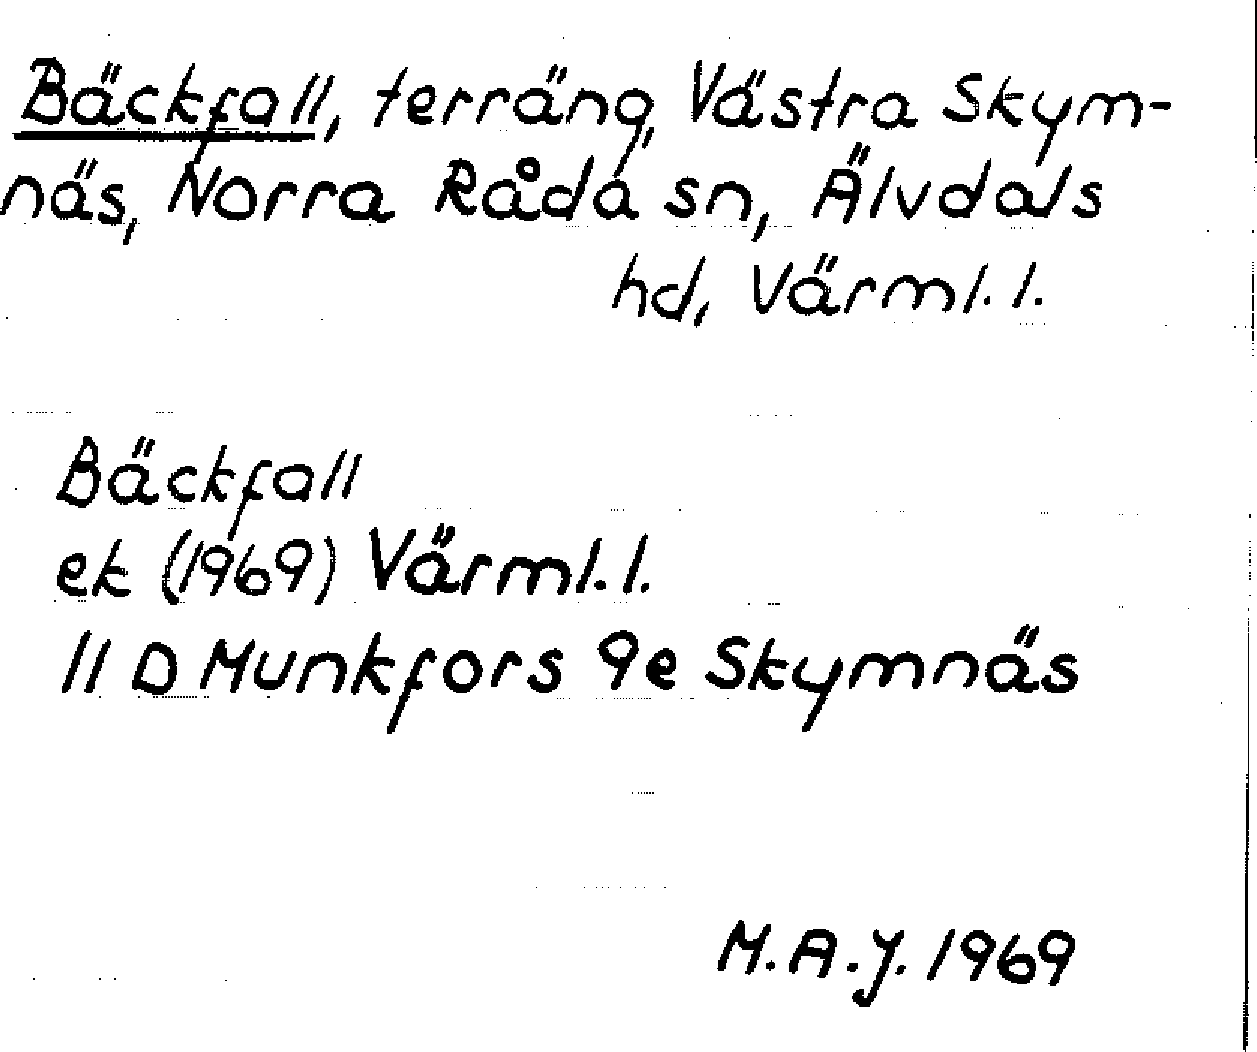 Bäckfall, terräng, Västra Skym-
näs, Norra Råda sn, Älvdals
hd, Värml. l.
Bäckfall
ek (1969) Värml. l.
11 D Munkfors 9e Skymnäs
M.A.J. 1969